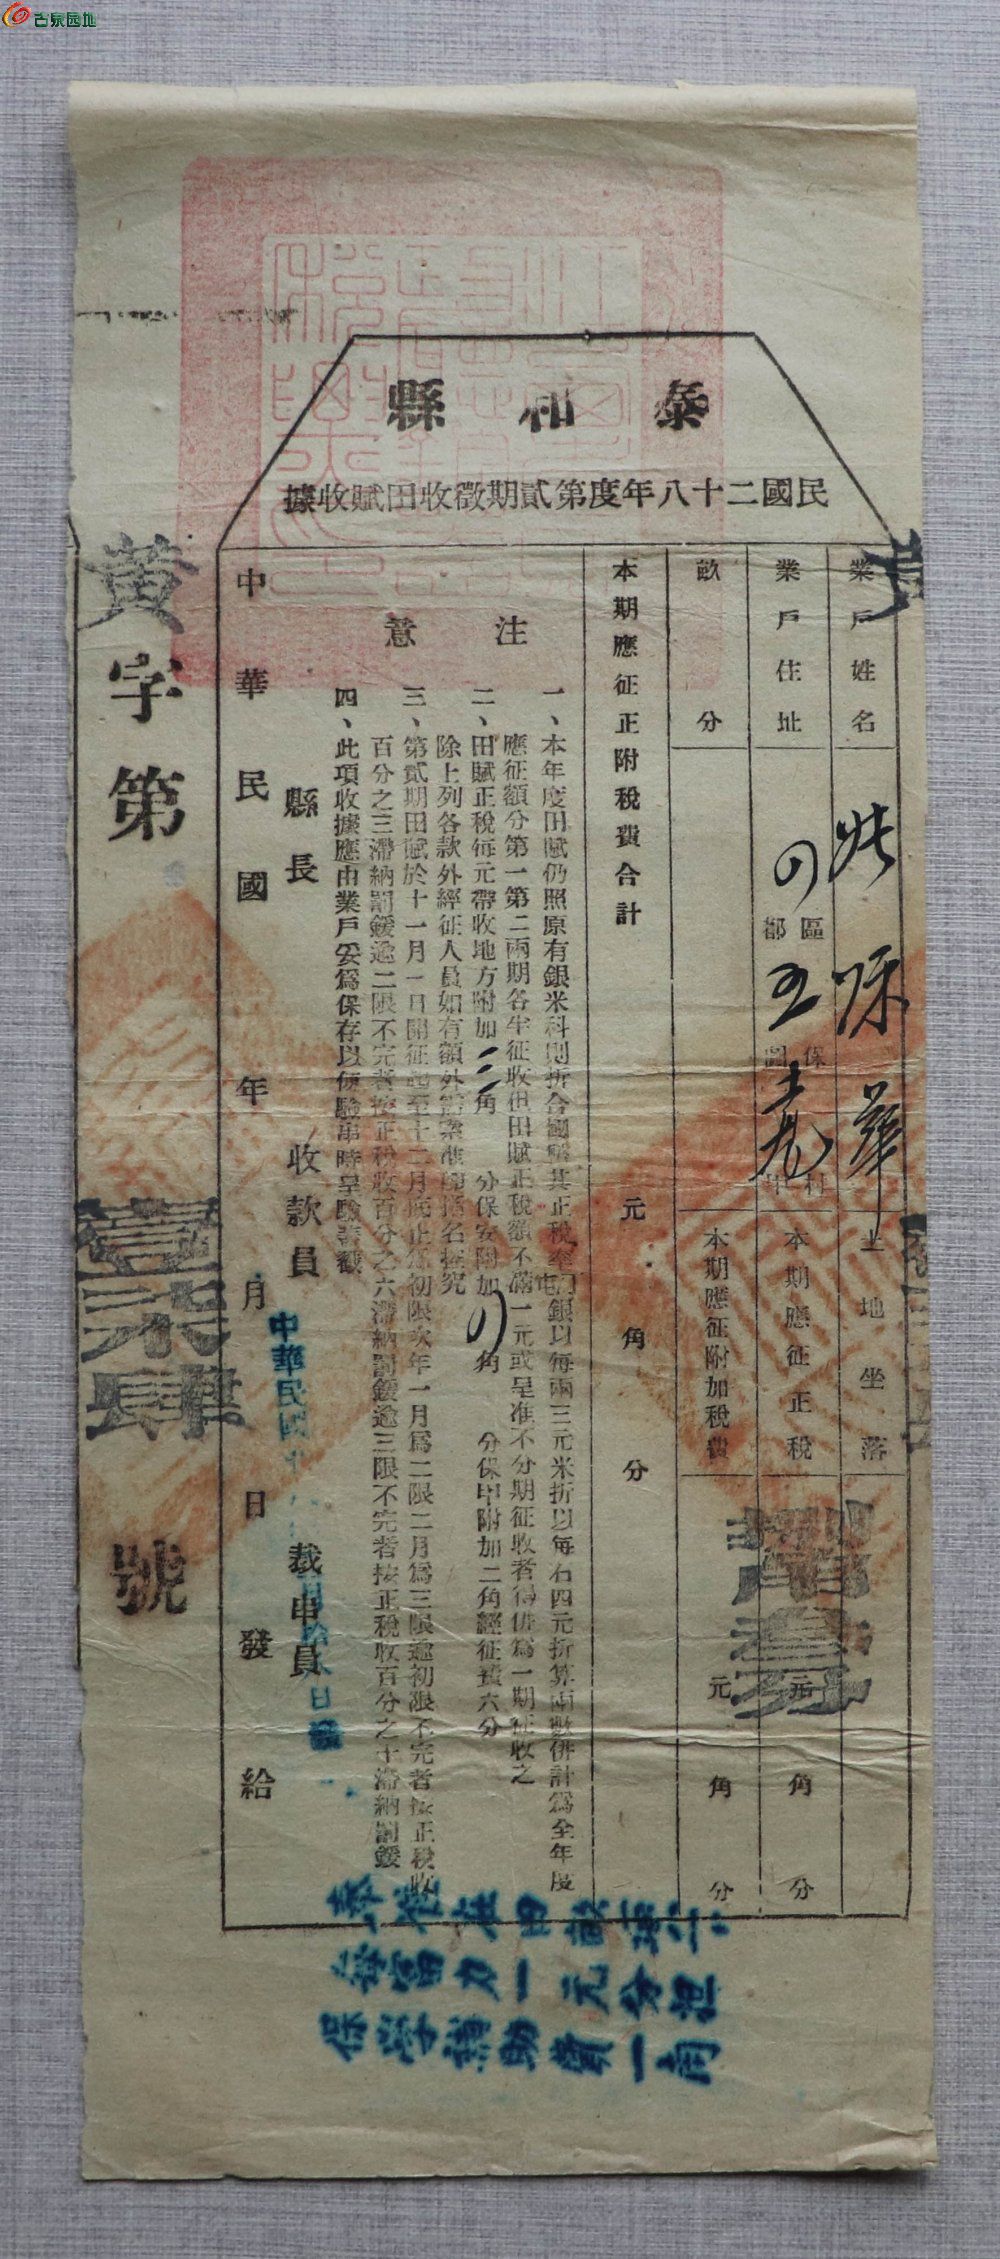 古泉园地
泰和縣
民國二十八年度第貳期徵收田賦收據
業戶姓名
土地坐落
業戶住址
の區都
五保圖
村甲
本期應征正稅
元角分
畝分
本期應征附加稅費
元角分
本期應征正附稅費合計
元角分
注意
一、本年度田賦仍照原有銀米科則折合國幣其正稅率銀以每兩三元米折以每石四元折算兩數併計為全年度
應征額分第一第二兩期各半征收但田賦正稅額不滿一元或呈准不分期征收者得併為一期征收之
二、田賦正稅每元帶收地方附加三角分保安附加の角分保甲附加二角經征費六分
除上列各款外經征人員如有額外需索准指名控究
三、第貳期田賦於十一月一日開征起至十二月底止為初限次年一月為二限二月為三限逾初限不完者按正稅收
百分之三滯納罰鍰逾二限不完者按正稅收百分之六滯納罰鍰逾三限不完者按正稅收百分之十滯納罰鍰
四、此項收據應由業戶妥為保存以便驗串時呈驗蓋戳
縣長
收款員
裁串員
中華民國年月日發給
中華民國
黃字第壹柒肆號
每元
保學補助費一角